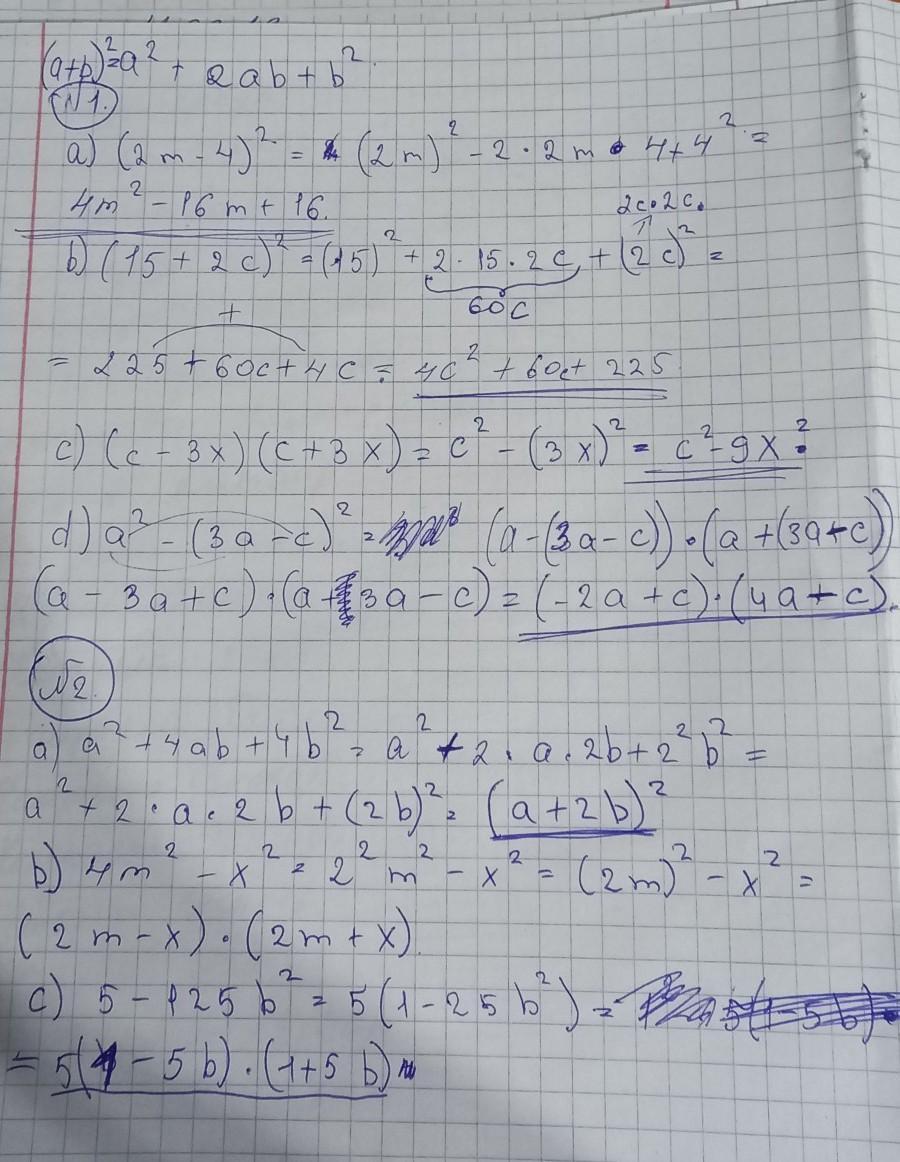 (a+b)²=a² + 2ab + b²
N1.
a) (2m - 4)² = (2m)² - 2 · 2m · 4 + 4² =
4m² - 16m + 16.
2c·2c.
b) (15 + 2c)² = (15)² + 2 · 15 · 2c + (2c)² =
60c
+
= 225 + 60c + 4c = 4c² + 60c + 225
c) (c - 3x)(c + 3x) = c² - (3x)² = c² - 9x².
d) a² - (3a - c)² = (a - (3a - c)) · (a + (3a - c))
(a - 3a + c) · (a + 3a - c) = (-2a + c) · (4a - c).
N2.
a) a² + 4ab + 4b² = a² + 2 · a · 2b + 2²b² =
a² + 2 · a · 2b + (2b)² = (a + 2b)²
b) 4m² - x² = 2²m² - x² = (2m)² - x² =
(2m - x) · (2m + x).
c) 5 - 125b² = 5(1 - 25b²) =
= 5(1 - 5b) · (1 + 5b)